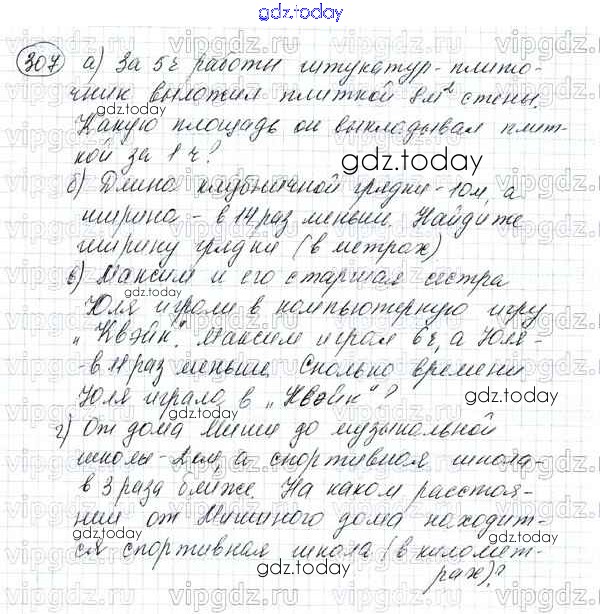 gdz.today
307 а) За 5 ч работы штукатур-плито-
чник выложил плиткой 8 м² стены.
Какую площадь он выкладывал плит-
кой за 1 ч?
gdz.today
б) Длина клубничной грядки - 10 м, а
ширина - в 14 раз меньше. Найдите
ширину грядки (в метрах)
в) Максим и его старшая сестра
Юля играли в компьютерную игру
„Квэйк". Максим играл 6 ч, а Юля-
- в 11 раз меньше. Сколько времени
Юля играла в „Квэйк"?
г) От дома Миши до музыкальной
школы - 2 км, а спортивная школа-
в 3 раза ближе. На каком расстоя-
нии от Мишиного дома находит-
ся спортивная школа (в километ-
рах)?
gdz.today